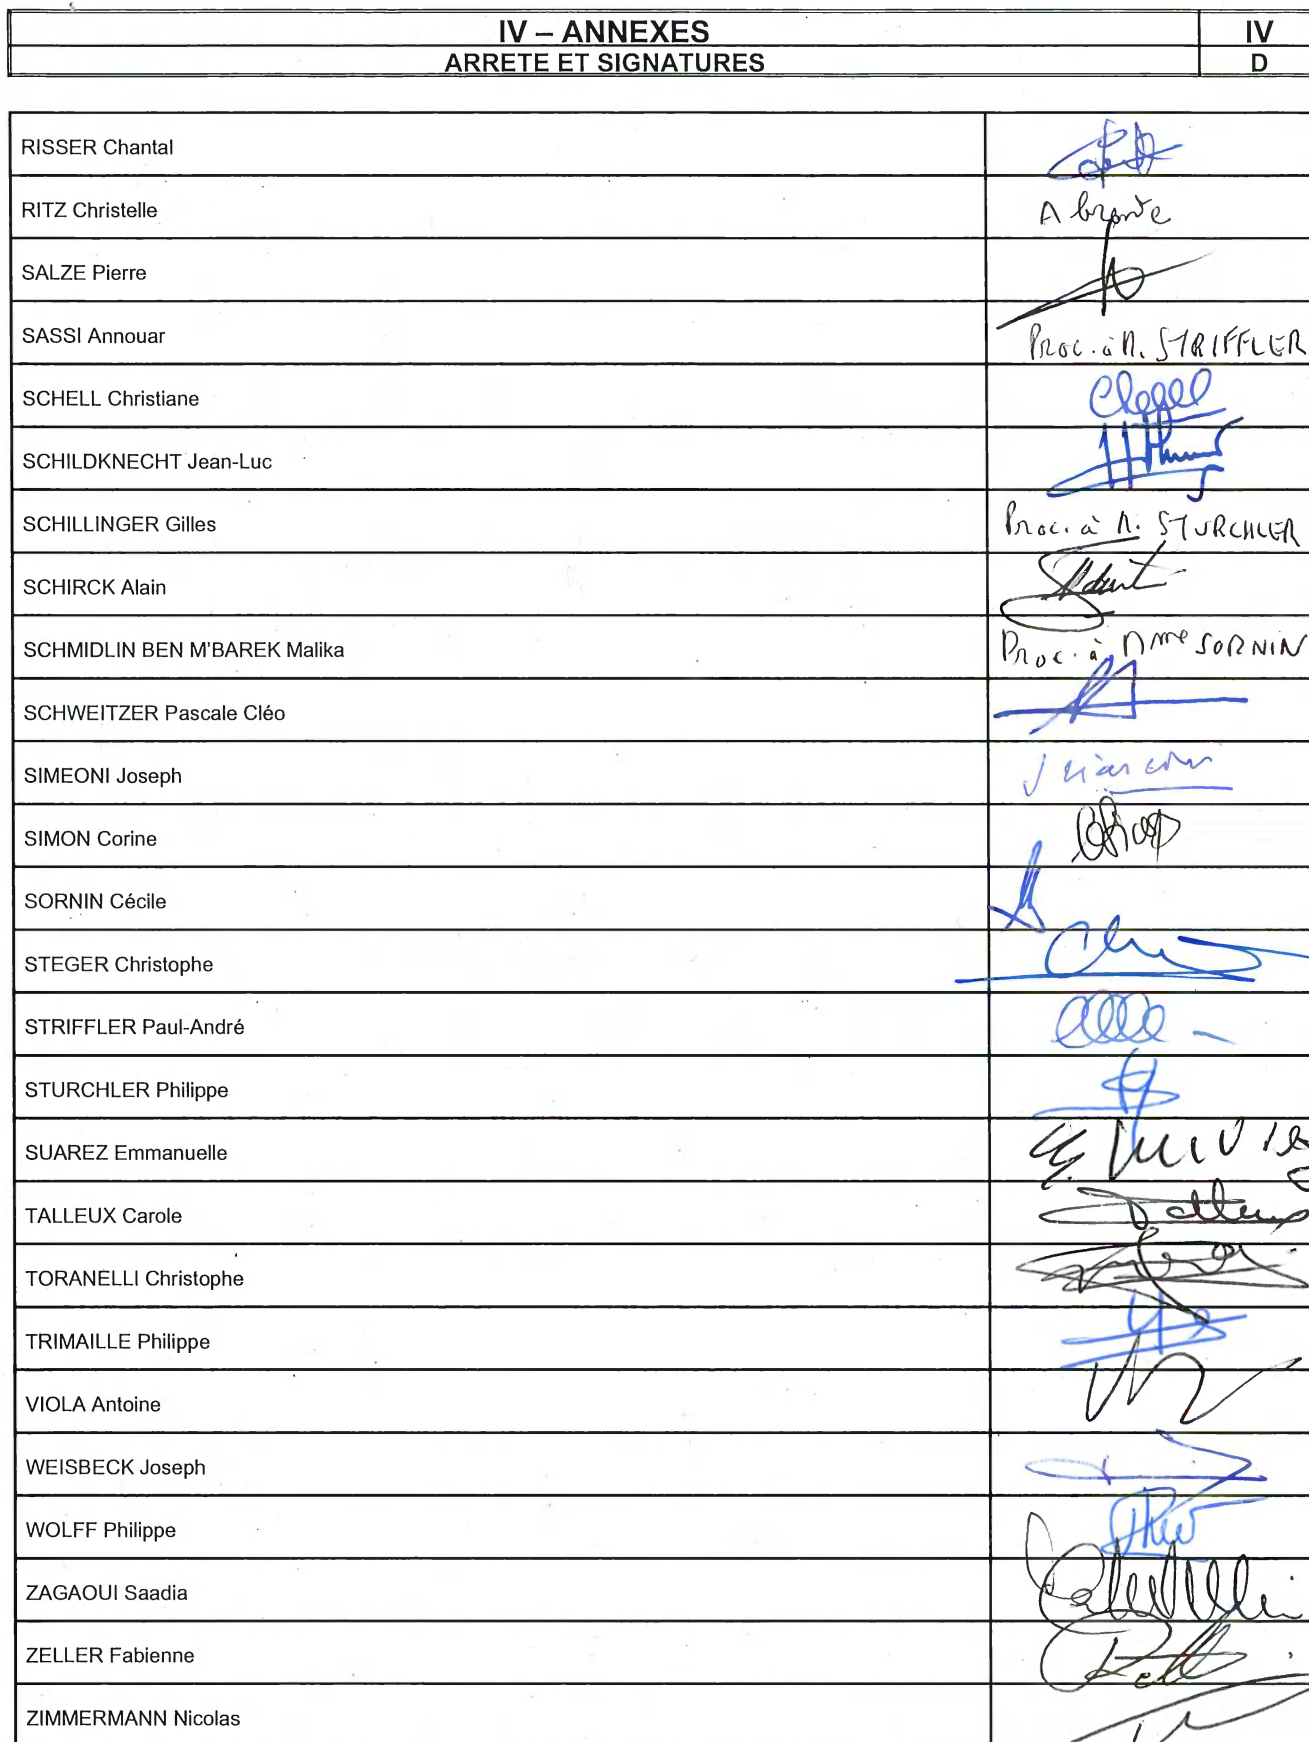 IV – ANNEXES IV
ARRETE ET SIGNATURES D
RISSER Chantal
RITZ Christelle
SALZE Pierre
SASSI Annouar Proc. à M. STRIFFLER
SCHELL Christiane
SCHILDKNECHT Jean-Luc
SCHILLINGER Gilles Proc. à M. STURCHLER
SCHIRCK Alain
SCHMIDLIN BEN M'BAREK Malika Proc. à Mme SORNIN
SCHWEITZER Pascale Cléo
SIMEONI Joseph
SIMON Corine
SORNIN Cécile
STEGER Christophe
STRIFFLER Paul-André
STURCHLER Philippe
SUAREZ Emmanuelle
TALLEUX Carole
TORANELLI Christophe
TRIMAILLE Philippe
VIOLA Antoine
WEISBECK Joseph
WOLFF Philippe
ZAGAOUI Saadia
ZELLER Fabienne
ZIMMERMANN Nicolas